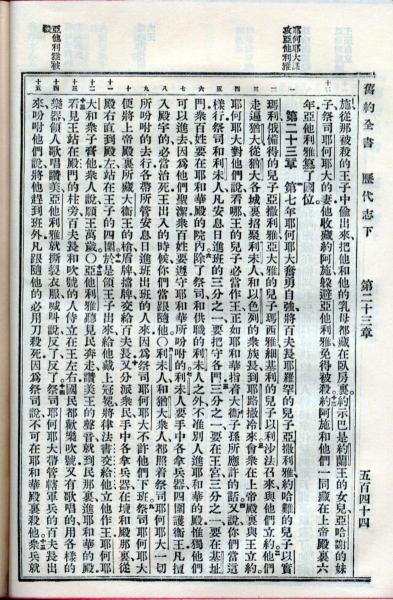 舊約全書　歷代志下　第二十三章　五百四十四
施從那被殺的王子中偷出來把他和他的乳母都藏在臥房裏約示巴是約蘭王的女兒亞哈謝的妹
子祭司耶何耶大的妻他收藏約阿施躲避亞他利雅免得被殺約阿施和他們一同藏在上帝殿裏六
年亞他利雅篡了國位
耶何耶大謀
攻亞他利雅
第二十三章　第七年耶何耶大奮勇自強將百夫長耶羅罕的兒子亞撒利雅約哈難的兒子以實
瑪利俄備得的兒子亞撒利雅亞大雅的兒子瑪西雅細基利的兒子以利沙法召來與他們立約他們
走遍猶大從猶大各城裏招聚利未人和以色列的衆族長到耶路撒冷來會衆在上帝殿裏與王立約
耶何耶大對他們說看哪王的兒子必當作王正如耶和華指着大衞子孫所應許的話又說你們當這
樣行祭司和利未人凡安息日進班的三分之一要把守各門三分之一要在王宮三分之一要在基址
門衆百姓要在耶和華殿的院內除了祭司和供職的利未人之外不准別人進耶和華的殿惟獨他們
可以進去因爲他們聖潔衆百姓要遵守耶和華所吩咐的利未人要手中各拿兵器四圍護衞王凡擅
入殿宇的必當治死王出入的時候你們當跟隨他○利未人和猶大衆人都照着祭司耶何耶大一切
所吩咐的去行各帶所管安息日進班出班的人來因爲祭司耶何耶大不許他們下班祭司耶何耶大
便將上帝殿裏所藏大衞王的槍盾牌擋牌交給百夫長又分派衆民手中各拿兵器在壇和殿那裏從
殿右直到殿左站在王子的四圍於是領王子出來給他戴上冠冕將律法書交給他立他作王耶何耶
大和衆子膏他衆人說願王萬歲○亞他利雅聽見民奔走讚美王的聲音就到民那裏進耶和華的殿
看見王站在殿門的柱旁百夫長和吹號的人侍立在王左右國民都歡樂吹號又有歌唱的用各樣的
樂器領人歌唱讚美亞他利雅就撕裂衣服喊叫說反了反了祭司耶何耶大帶管轄軍兵的百夫長出
亞他利雅被
殺
來吩咐他們說將他趕到班外凡跟隨他的必用刀殺死因爲祭司說不可在耶和華殿裏殺他衆兵就